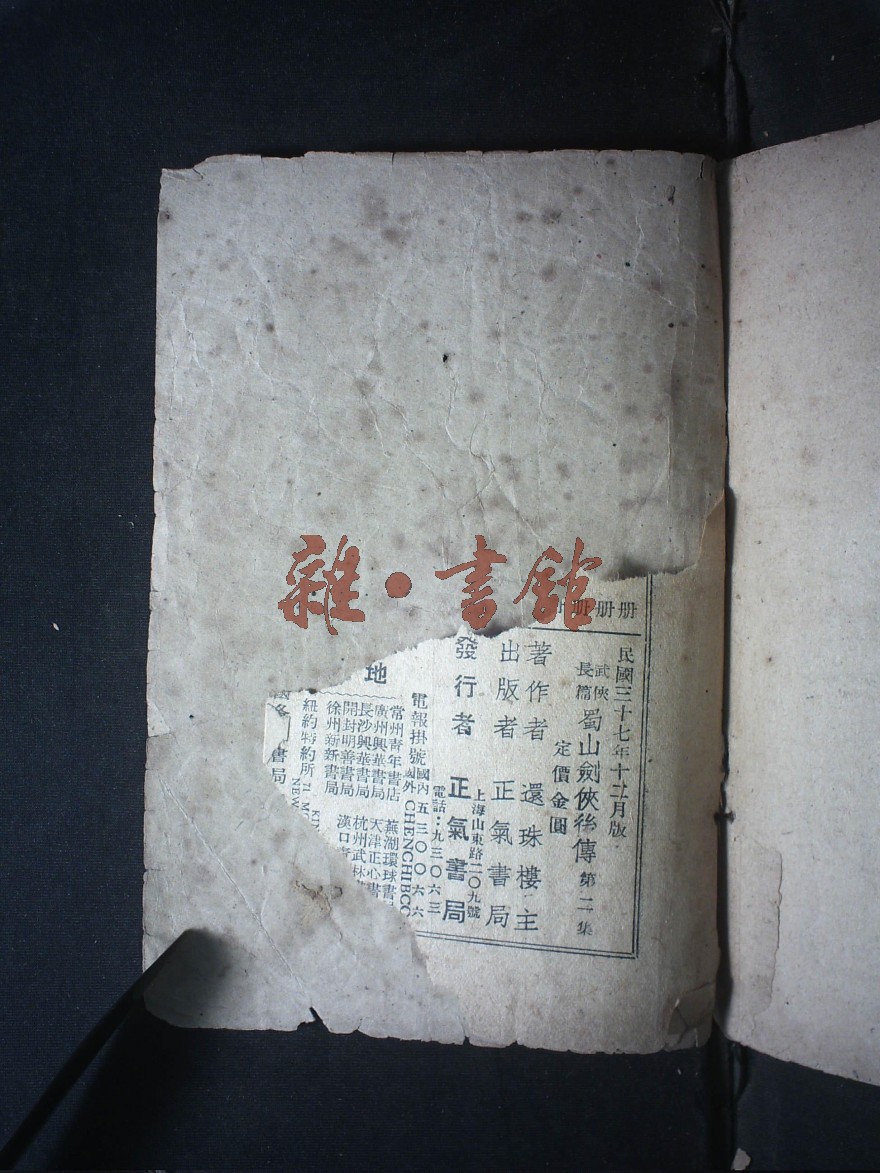 雜·書館
冊冊冊
民國三十七年十二月版
武俠長篇 蜀山劍俠後傳 第二集
定價金圓
著作者 還珠樓主
出版者 正氣書局
上海山東路二〇九號
發行者 正氣書局
電話:九三〇六三
電報掛號 國內 五三〇〇六六
國外 CHENCHIBCO
地
常州青年書店 蕪湖環球書局
廣州興華書局 天津正心書
長沙興華書局 杭州武林
開封明善書局 漢口
徐州新新書局
紐約特約所
NEW
書局